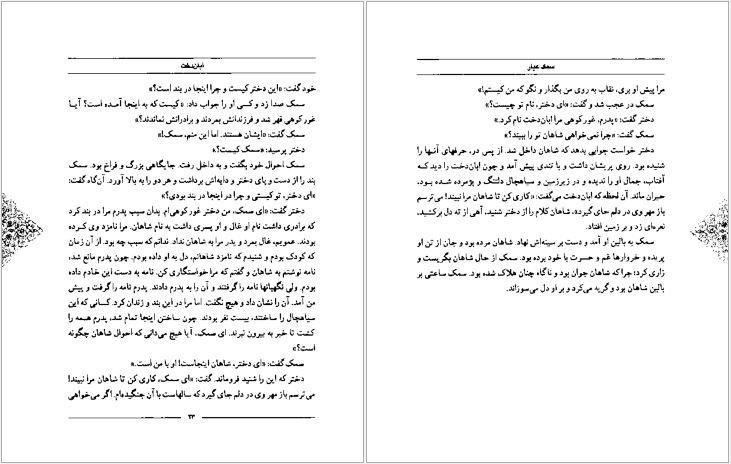 ابان‌دخت
خود گفت: «این دختر کیست و چرا اینجا در بند است؟»
سمک صدا زد و کسی او را جواب داد: «کیست که به اینجا آمده است؟ آیا
غورکوهی قهر شد و فرزندانش بمردند و برادرانش نماندند؟»
سمک گفت: «ایشان هستند. اما این منم، سمک!»
دختر پرسید: «سمک کیست؟»
سمک احوال خود بگفت و به داخل رفت. جایگاهی بزرگ و فراخ بود. سمک
بند را از دست و پای دختر و دایه‌اش برداشت و هر دو را به بالا آورد. آن‌گاه گفت:
«ای دختر، تو کیستی و چرا در اینجا در بند بودی؟»
دختر گفت: «ای سمک، من دختر غورکوهی‌ام. بدان سبب پدرم مرا در بند کرد
که برادری داشت نام او غال و او پسری داشت به نام شاهان. مرا نامزد وی کرده
بودند. عمویم، غال بمرد و پدر مرا به شاهان نداد. ندانم که سبب چه بود. از آن زمان
که کودک بودم و شنیدم که نامزد شاهانم، دل به او داده بودم. چون پدرم مانع شد،
نامه نوشتم به شاهان و گفتم که مرا خواستگاری کن. نامه به دست این خادم داده
بودم. ولی نگهبانها نامه را گرفتند و آن را به پدرم دادند. پدرم نامه را گرفت و پیش
من آمد. آن را نشان داد و هیچ نگفت. اما مرا در این بند و زندان کرد. کسانی که این
سیاهچال را ساختند، بیست نفر بودند. چون ساختن اینجا تمام شد، پدرم همه را
کشت تا خبر به بیرون نبرند. ای سمک، آیا هیچ می‌دانی که احوال شاهان چگونه
است؟»
سمک گفت: «ای دختر، شاهان اینجاست! او با من است.»
دختر که این را شنید فروماند. گفت: «ای سمک، کاری کن تا شاهان مرا نبیند!
می‌ترسم باز مهر وی در دلم جای گیرد که سالهاست با آن جنگیده‌ام. اگر می‌خواهی
۲۳
سمک عیار
مرا پیش او بری، نقاب به روی من بگذار و نگو که من کیستم!»
سمک در عجب شد و گفت: «ای دختر، نام تو چیست؟»
دختر گفت: «پدرم، غورکوهی مرا ابان‌دخت نام کرد.»
سمک گفت: «چرا نمی‌خواهی شاهان تو را ببیند؟»
دختر خواست جوابی بدهد که شاهان داخل شد. از پس در، حرفهای آنها را
شنیده بود. روی پریشان داشت و با تندی پیش آمد و چون ابان‌دخت را دید که
آفتاب، جمال او را ندیده و در زیرزمین و سیاهچال دلتنگ و پژمرده شده بود،
حیران ماند. آن لحظه که ابان‌دخت می‌گفت: «کاری کن تا شاهان مرا نبیند! می‌ترسم
باز مهر وی در دلم جای گیرد»، شاهان کلام را از دختر شنید، آهی از ته دل برکشید.
نعره‌ای زد و بر زمین افتاد.
سمک به بالین او آمد و دست بر سینه‌اش نهاد. شاهان مرده بود و جان از تن او
پریده و خروارها غم و حسرت با خود برده بود. سمک از حال شاهان بگریست و
زاری کرد؛ چرا که شاهان جوان بود و ناگاه چنان هلاک شده بود. سمک ساعتی بر
بالین شاهان بود و گریه می‌کرد و بر او دل می‌سوزاند.